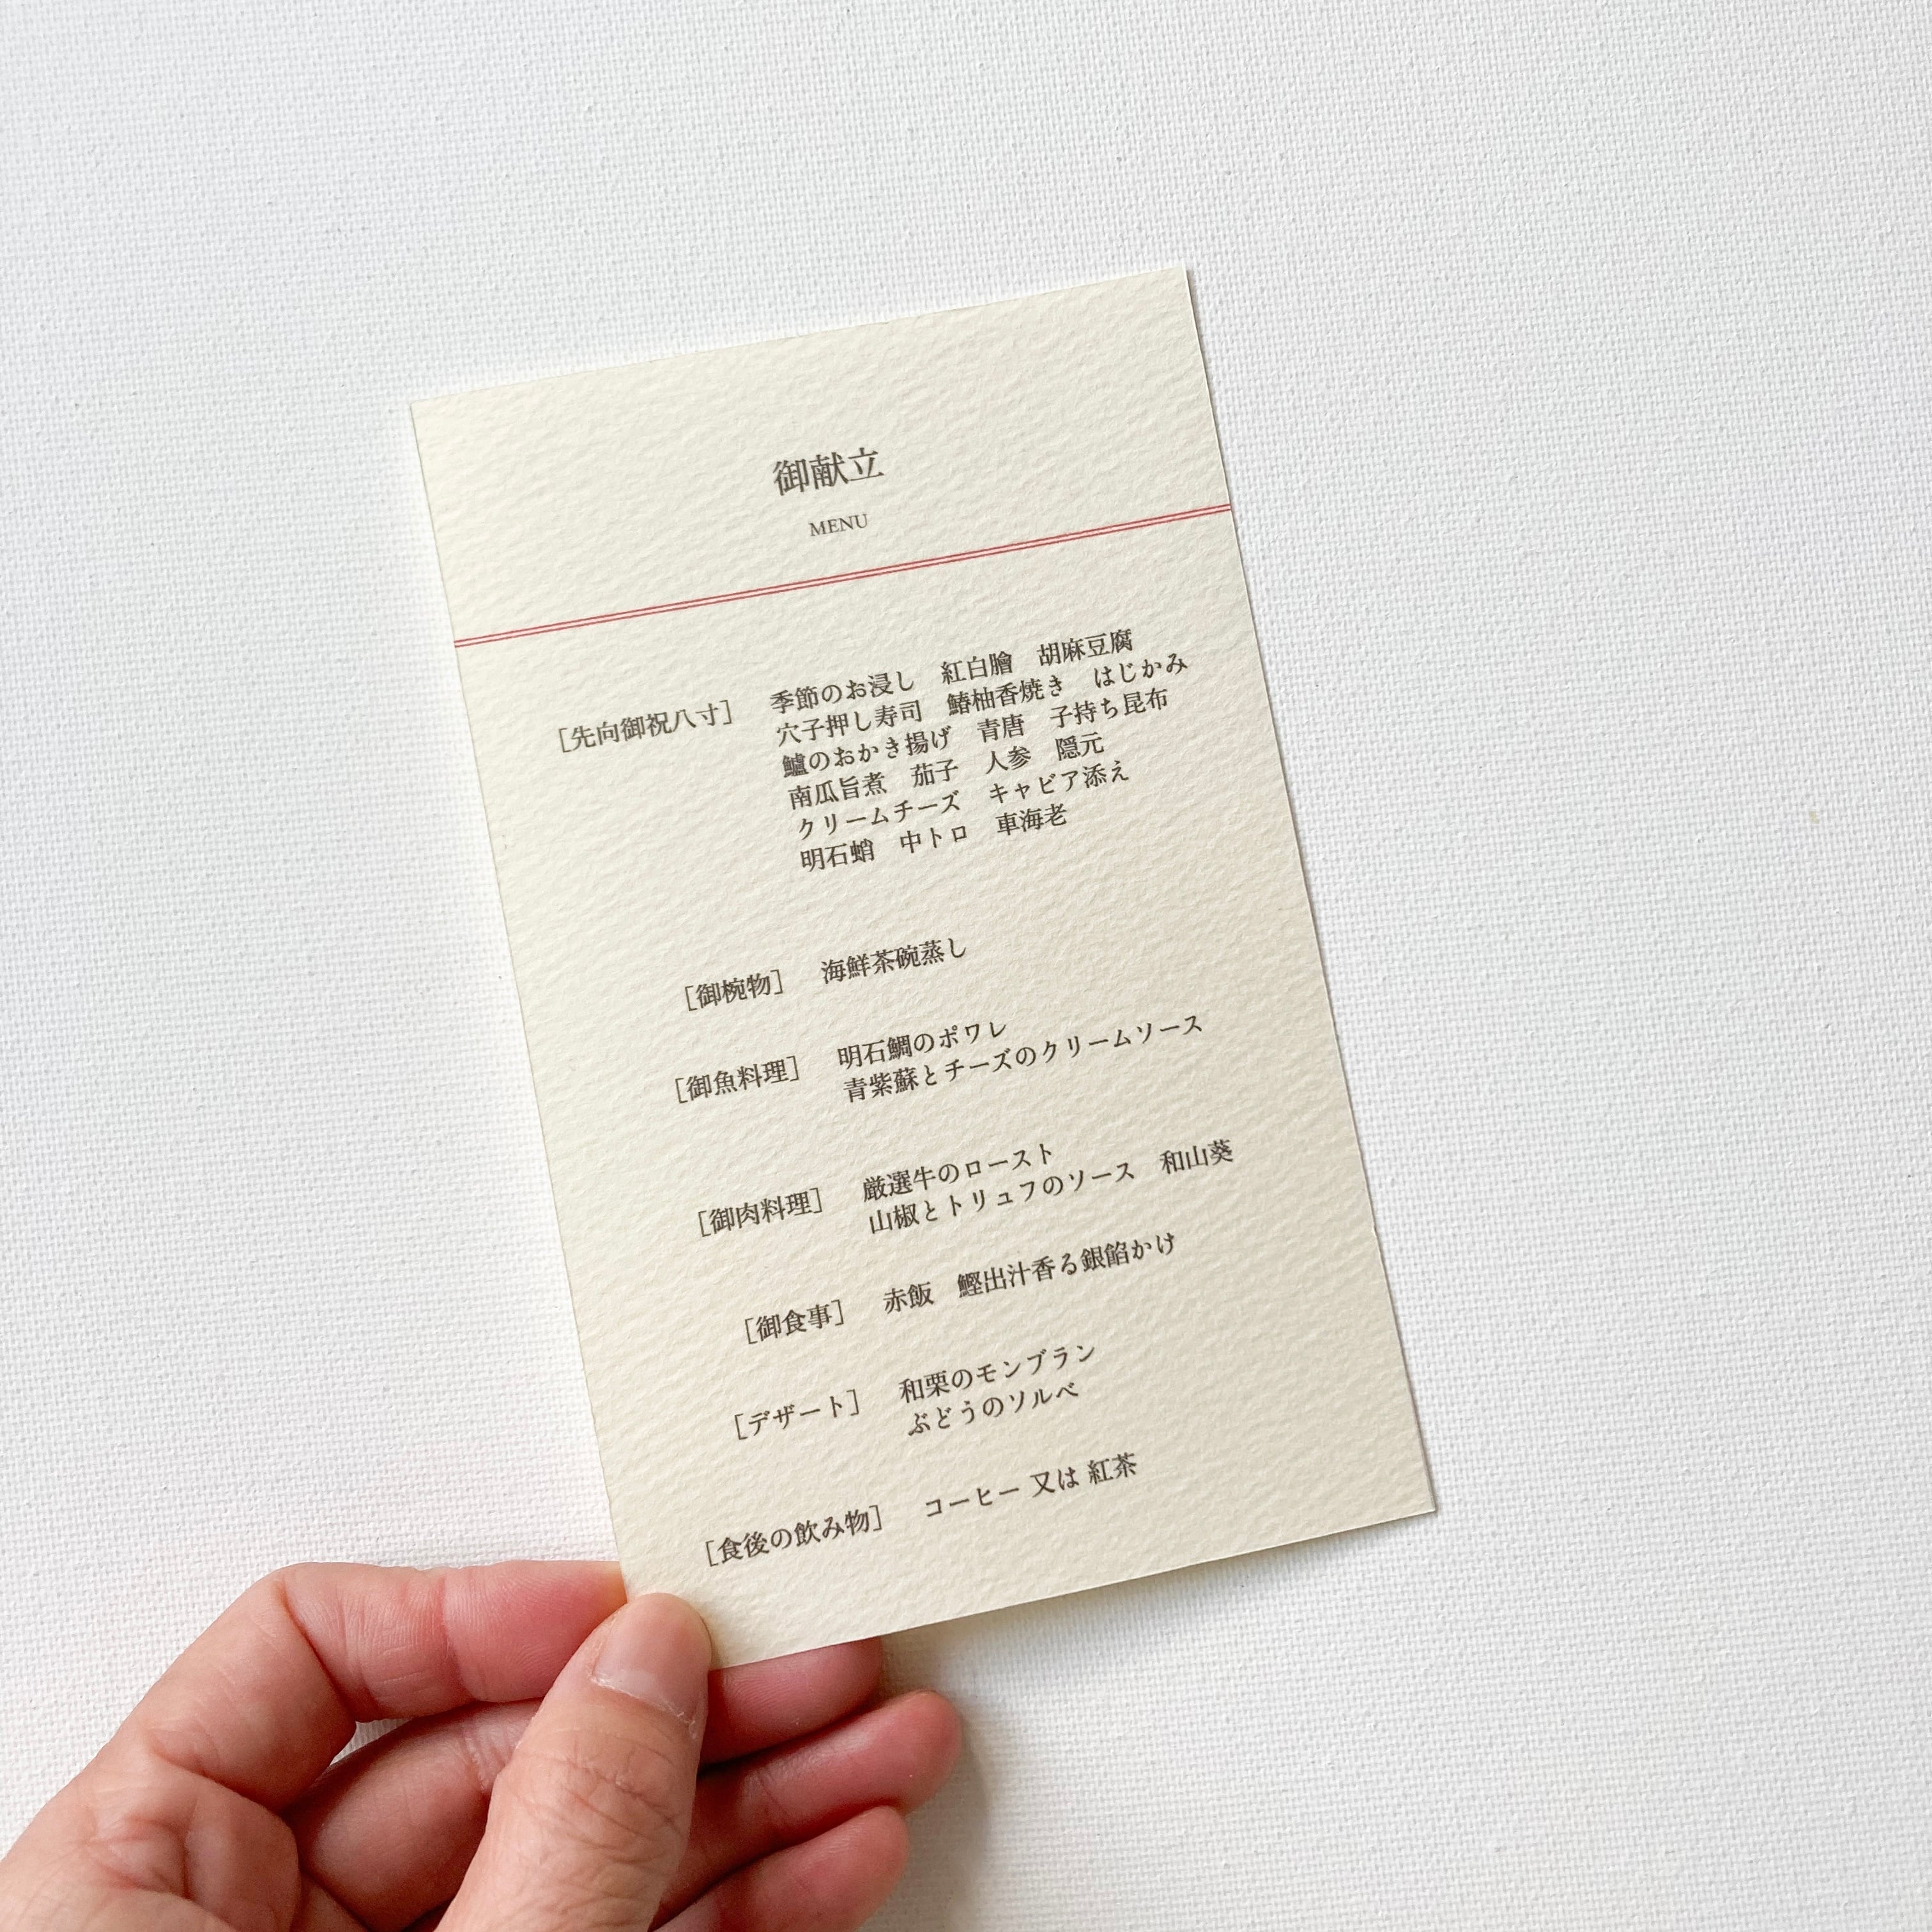 御献立
MENU
［先向御祝八寸］ 季節のお浸し 紅白膾 胡麻豆腐
穴子押し寿司 鰆柚香焼き はじかみ
鱸のおかき揚げ 青唐 子持ち昆布
南瓜旨煮 茄子 人参 隠元
クリームチーズ キャビア添え
明石蛸 中トロ 車海老
［御椀物］ 海鮮茶碗蒸し
［御魚料理］ 明石鯛のポワレ
青紫蘇とチーズのクリームソース
［御肉料理］ 厳選牛のロースト
山椒とトリュフのソース 和山葵
［御食事］ 赤飯 鰹出汁香る銀餡かけ
［デザート］ 和栗のモンブラン
ぶどうのソルベ
［食後の飲み物］ コーヒー 又は 紅茶